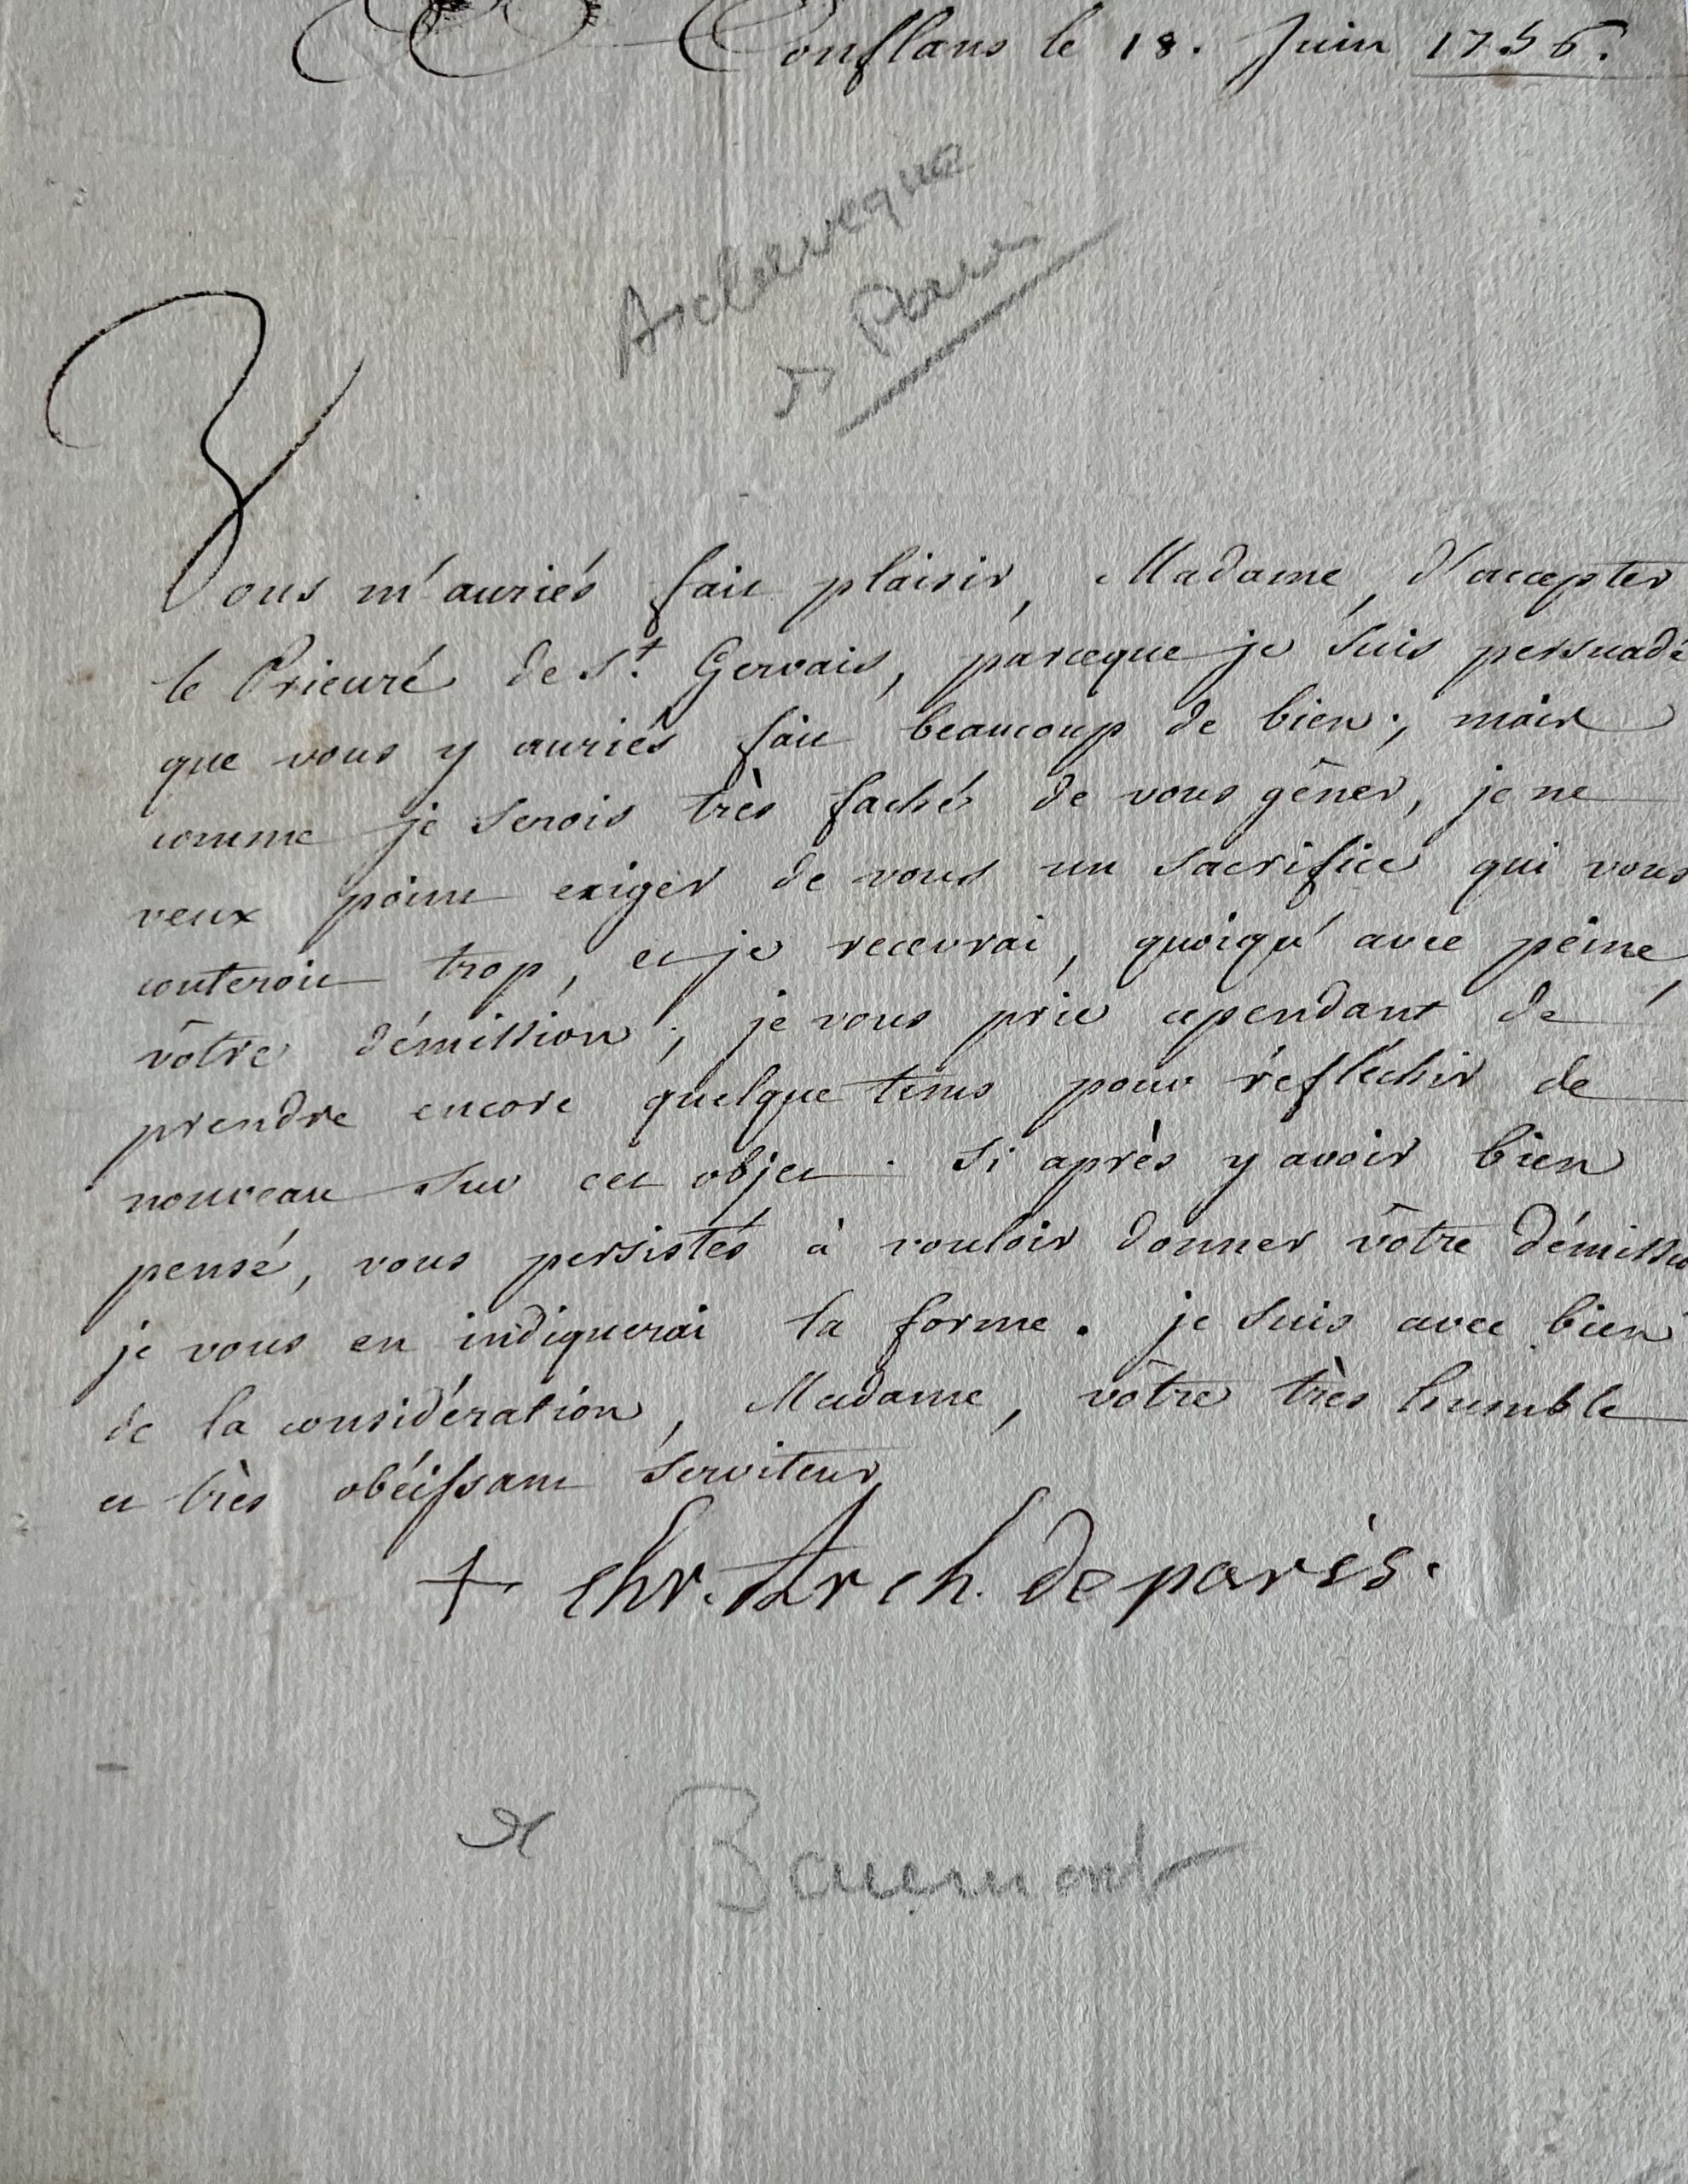 Conflans le 18. Juin 1756.
Archeveque
de Paris
Vous m'auriés fait plaisir, Madame, d'accepter
le Prieuré de St. Gervais, parceque je suis persuadé
que vous y auriés fait beaucoup de bien; mais
comme je serois très faché de vous gêner, je ne
veux point exiger de vous un sacrifice qui vous
couteroit trop, et je recevrai, quoiqu'avec peine,
vôtre démission; je vous prie cependant de
prendre encore quelque tems pour réfléchir de
nouveau sur cet objet. Si après y avoir bien
pensé, vous persistés à vouloir donner vôtre démissio
je vous en indiquerai la forme. je suis avec bien
de la considération, Madame, vôtre très humble
et très obéissant serviteur
+ chr. Arch. de paris.
de Beaumont